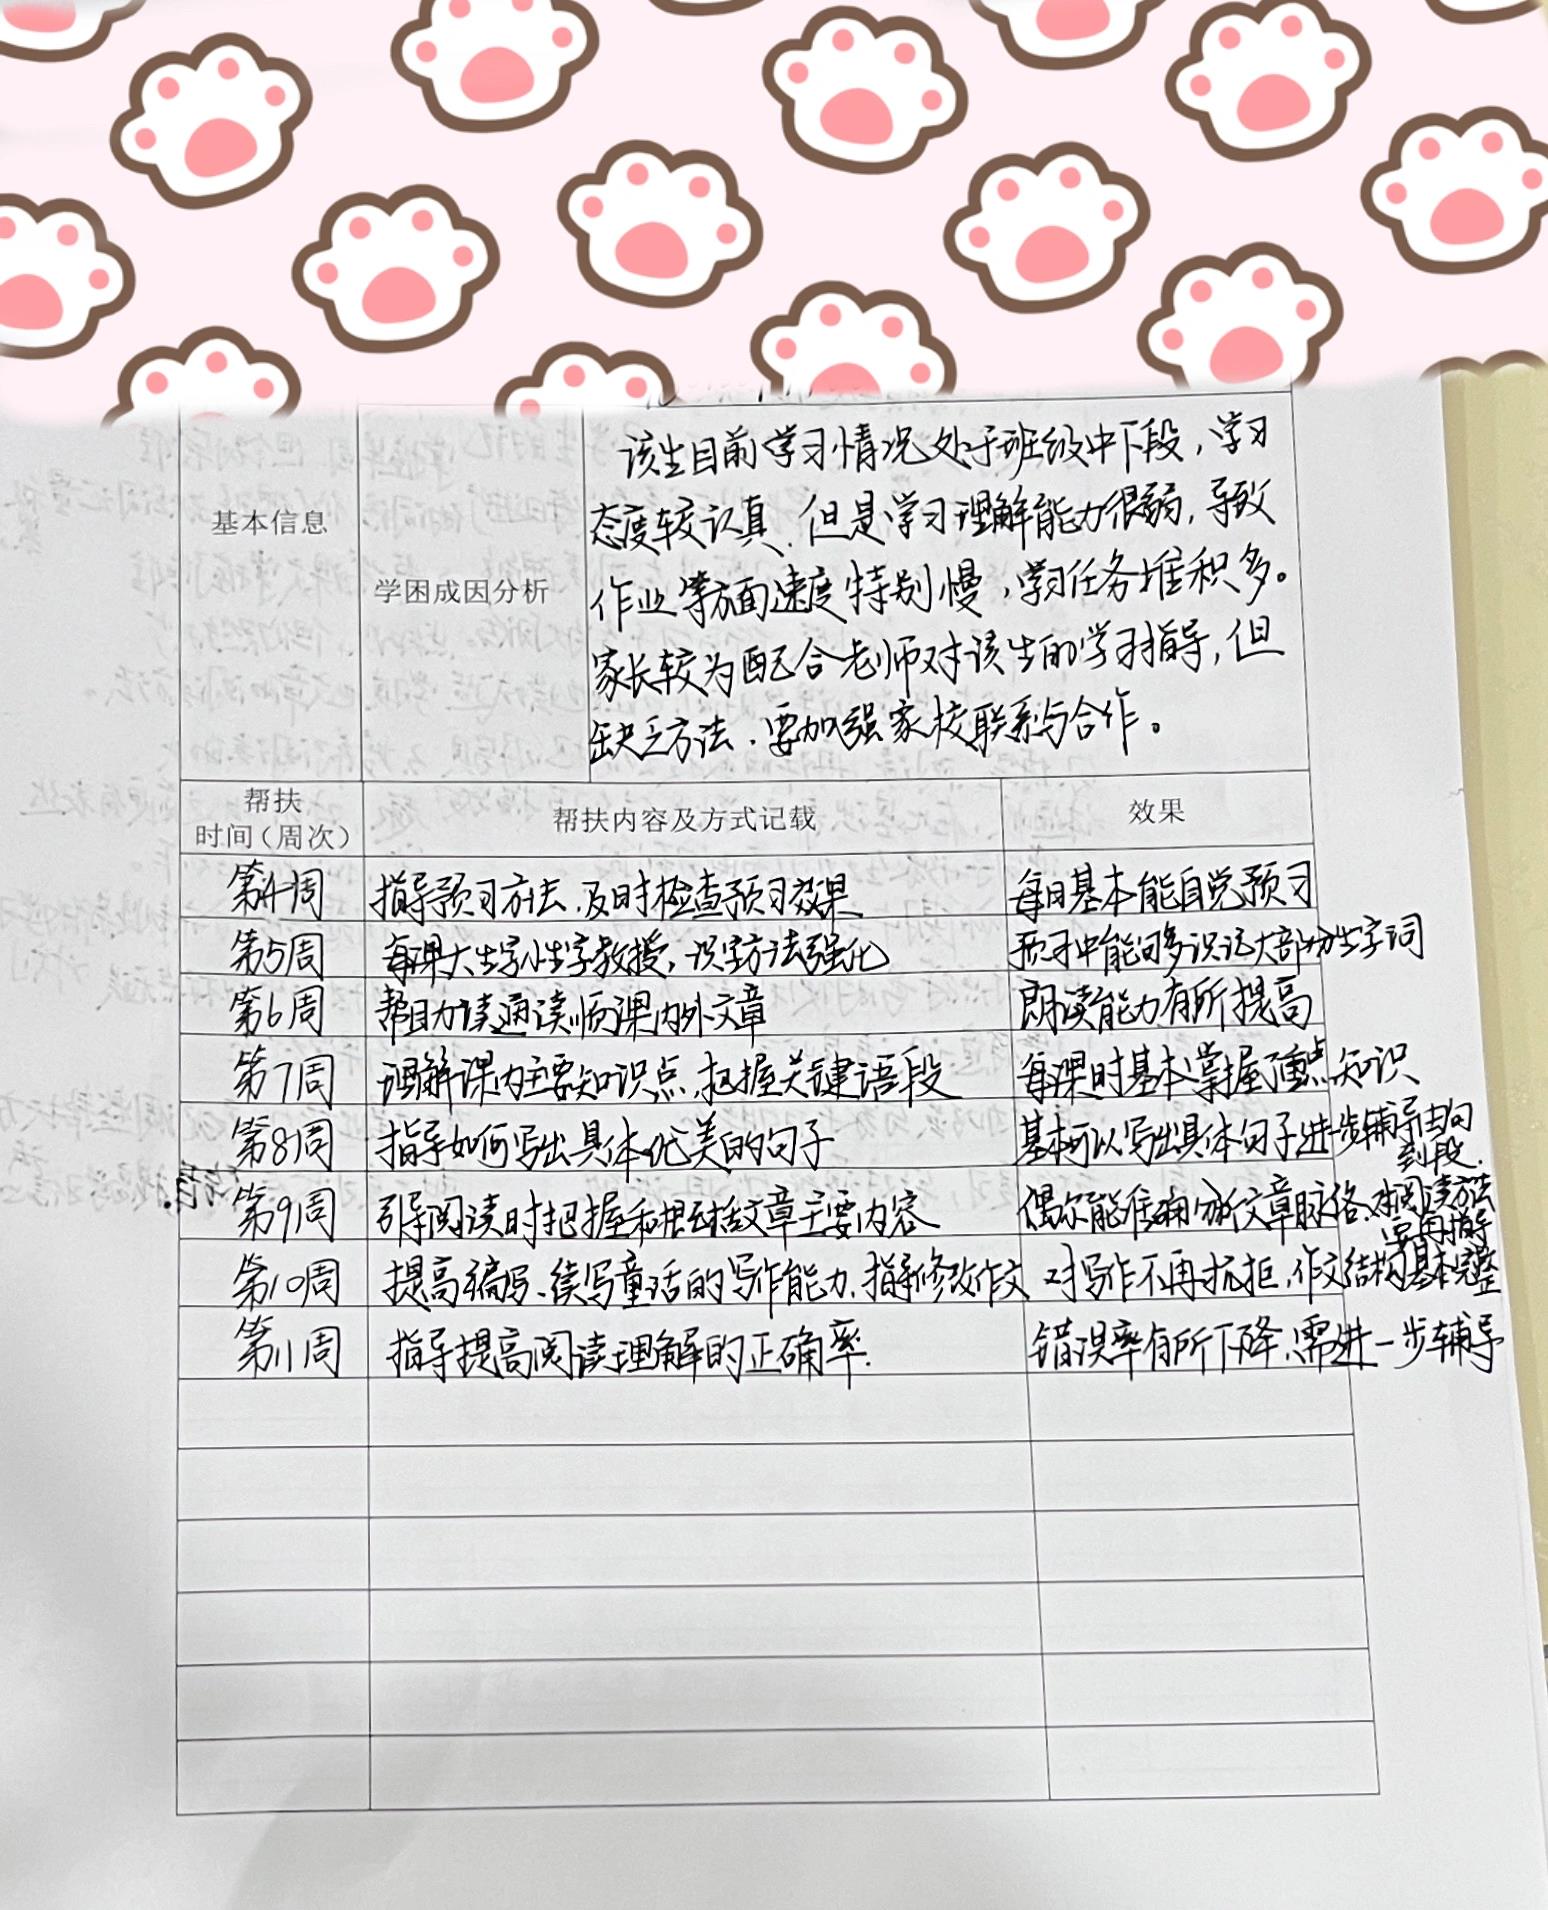 基本信息
学困成因分析
该生目前学习情况处于班级中下段，学习
态度较认真、但是学习理解能力很弱，导致
作业等方面速度特别慢，学习任务堆积多。
家长较为配合老师对该生的学习指导，但
缺乏方法．要加强家校联系与合作。
帮扶
时间（周次）
帮扶内容及方式记载
效果
第4周 指导预习方法、及时检查预习效果 每日基本能自觉预习
第5周 每课大生字小生字教授，识字方法强化 预习中能够多识记大部分生字词
第6周 帮助读通读顺课内外文章 朗读能力有所提高
第7周 理解课内主要知识点、把握关键语段 每课时基本掌握了重点知识
第8周 指导如何写出具体优美的句子 基本可以写出具体句子进一步辅导由句
到段．
第9周 引导阅读时把握和概括文章主要内容 偶尔能准确分析文章脉络、对阅读方法
要再指导
第10周 提高编写、续写童话的写作能力、指导修改作文 对写作不再抗拒，作文结构基本完整
第11周 指导提高阅读理解的正确率． 错误率有所下降，需进一步辅导